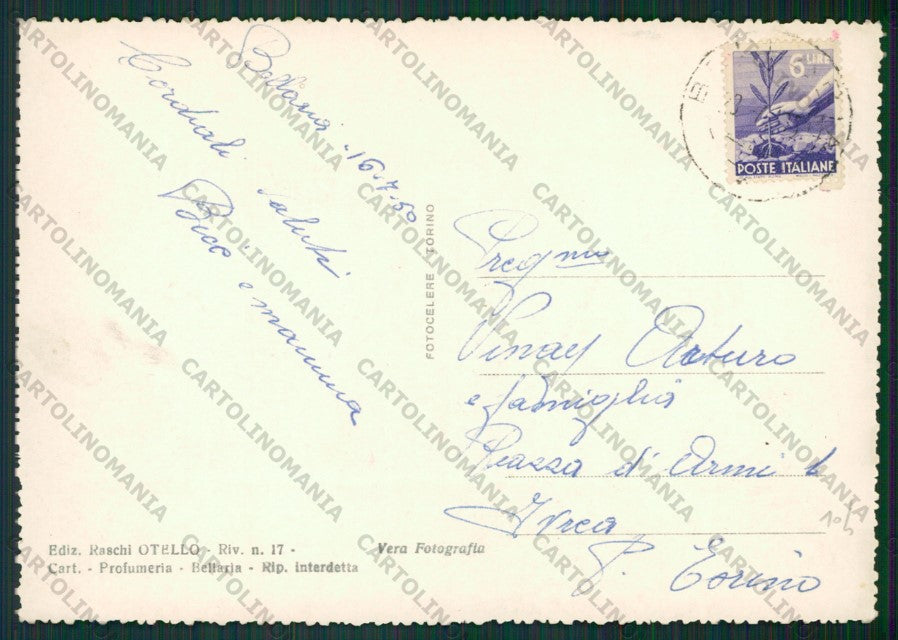 Bellaria 16.7.50
Cordiali saluti
Bicò e mamma
6 LIRE
POSTE ITALIANE
FOTOCELERE TORINO
Preg mi
Vinay Arturo
e famiglia
Piazza d'Armi 6
Ivrea
P. Torino
Ediz. Raschi OTELLO - Riv. n. 17 -
Cart. - Profumeria - Bellaria - Rip. interdetta
Vera Fotografia
CARTOLINOMANIA